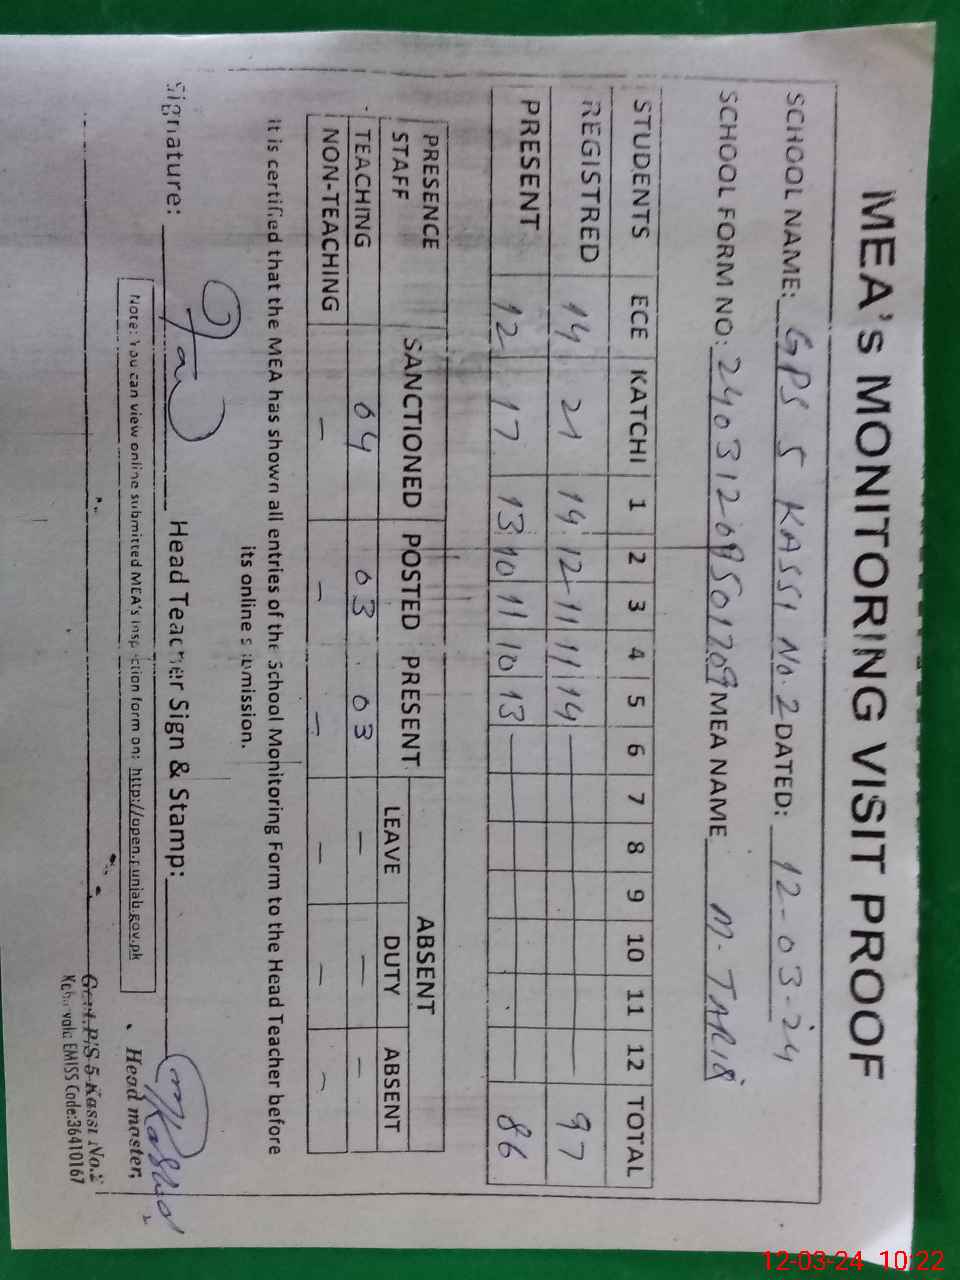 MEA's MONITORING VISIT PROOF
SCHOOL NAME: GPS 5 KASSI NO.2 DATED: 12-03-24
SCHOOL FORM NO: MEA NAME M. TARIQ
STUDENTS ECE KATCHI 1 2 3 4 5 6 7 8 9 10 11 12 TOTAL
REGISTRED 14 21 14 12 11 11 14 97
PRESENT 12 17 13 10 11 10 13 86
PRESENCE STAFF SANCTIONED POSTED PRESENT ABSENT
LEAVE DUTY ABSENT
TEACHING 04 03 03 — — —
NON-TEACHING — — — — — —
It is certified that the MEA has shown all entries of the School Monitoring Form to the Head Teacher before
its online submission.
Signature: Head Teacher Sign & Stamp:
Note: You can view online submitted MEA's inspection form on: http://open.punjab.gov.pk
Head master,
Govt.P/S 5-Kassi No.2
EMISS Code:36410167
12-03-24 10:22